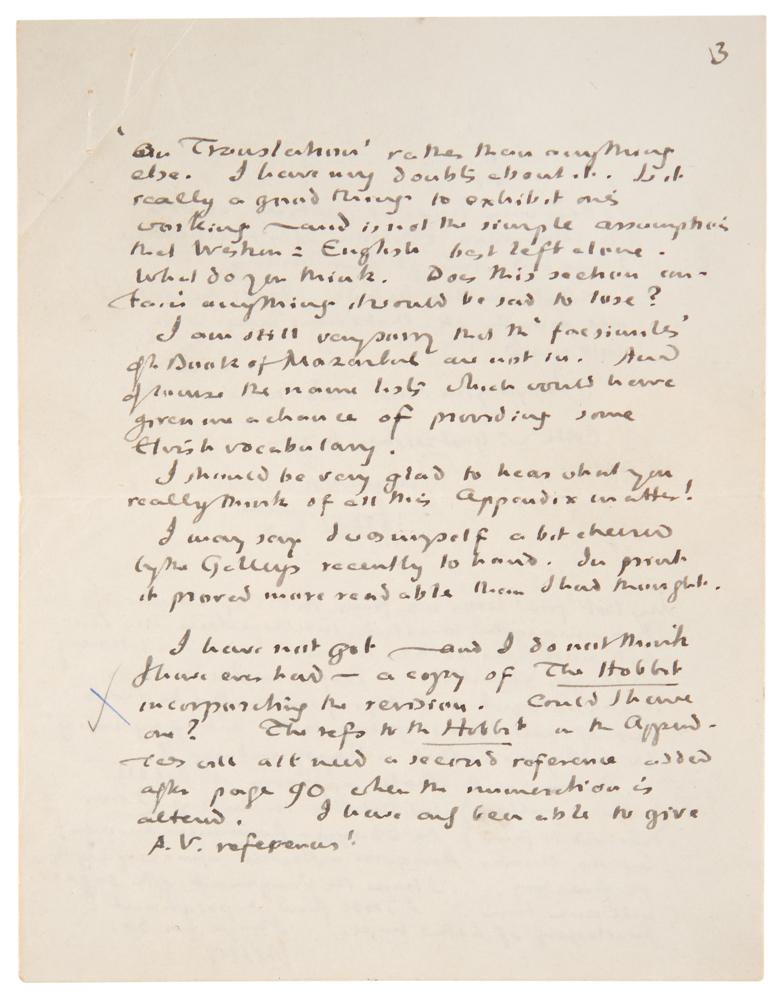 3
'On Translation' rather than anything
else. I have my doubts about it. Is it
really a good thing to exhibit one's
working — and is not the simple assumption
that Western = English best left alone.
What do you think. Does this section con-
tain anything it would be sad to lose?
I am still very sorry that the 'facsimiles'
of the Book of Mazarbul are not in. And
of course the name lists which would have
given me a chance of providing some
Elvish vocabulary!
I should be very glad to hear what you
really think of all this Appendix matter!
I may say I was myself a bit cheered
by the Galleys recently to hand. In print
it proved more readable than I had thought.
I have not got — and I do not think
I have ever had — a copy of The Hobbit
incorporating the revision. Could I have
one? The refs to the Hobbit in the Append-
ices will all need a second reference added
after page 90 when the numeration is
altered. I have only been able to give
A.V. references!